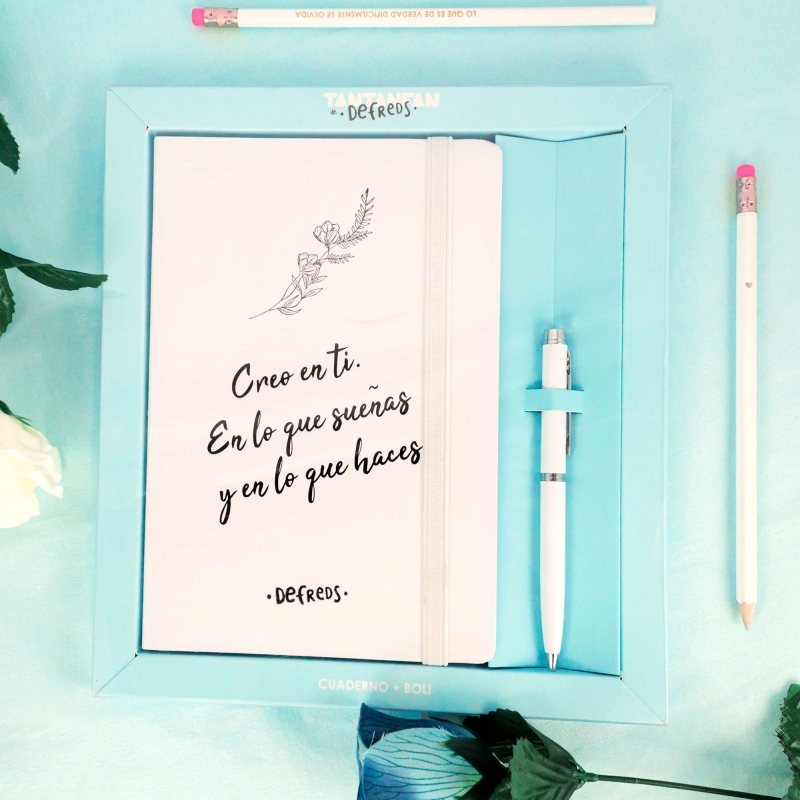 LO QUE ES DE VERDAD DIFICILMENTE SE OLVIDA
TANTANFAN
de •DEFREDS•
Creo en ti.
En lo que sueñas
y en lo que haces
•DEFREDS•
CUADERNO + BOLI